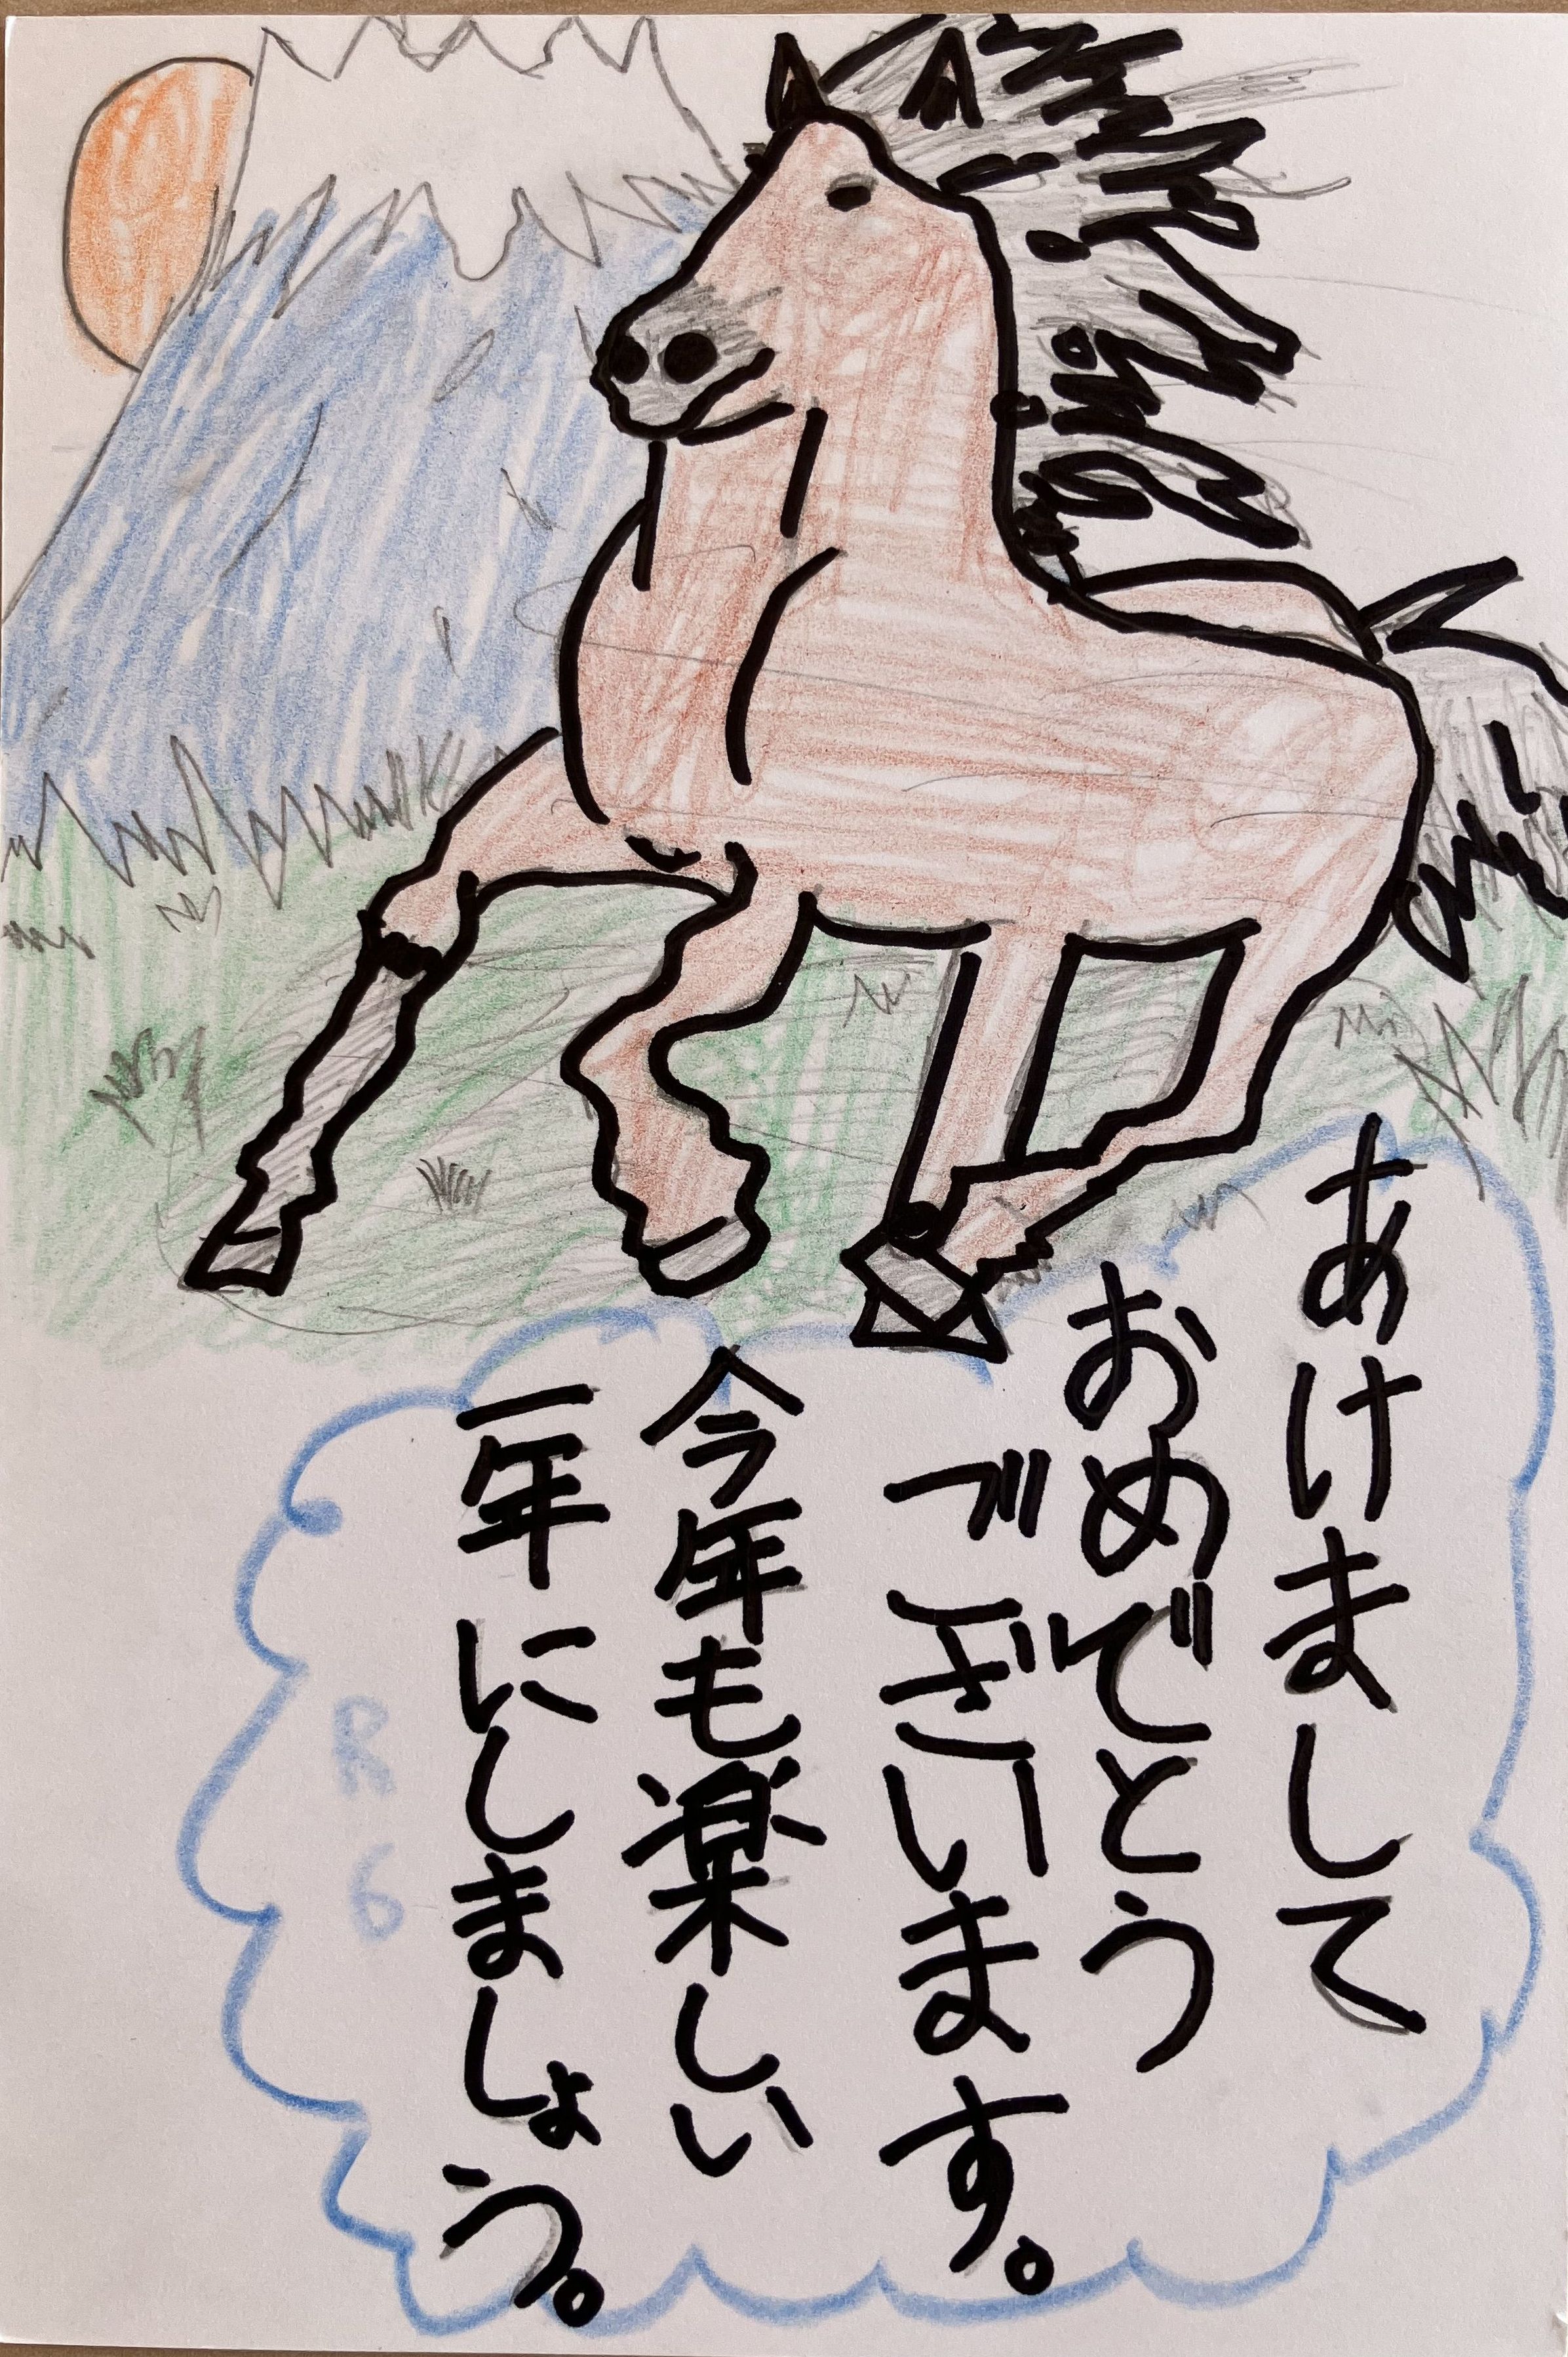 あけまして
おめでとう
ございます。
今年も楽しい
一年にしましょう。
R6